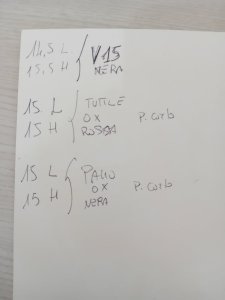 14,5 L V15
15,5 H NERA
15 L TUTTLE
OX P. curb
15 H ROSSA
15 L PALIO
OX P. curb
15 H NERA